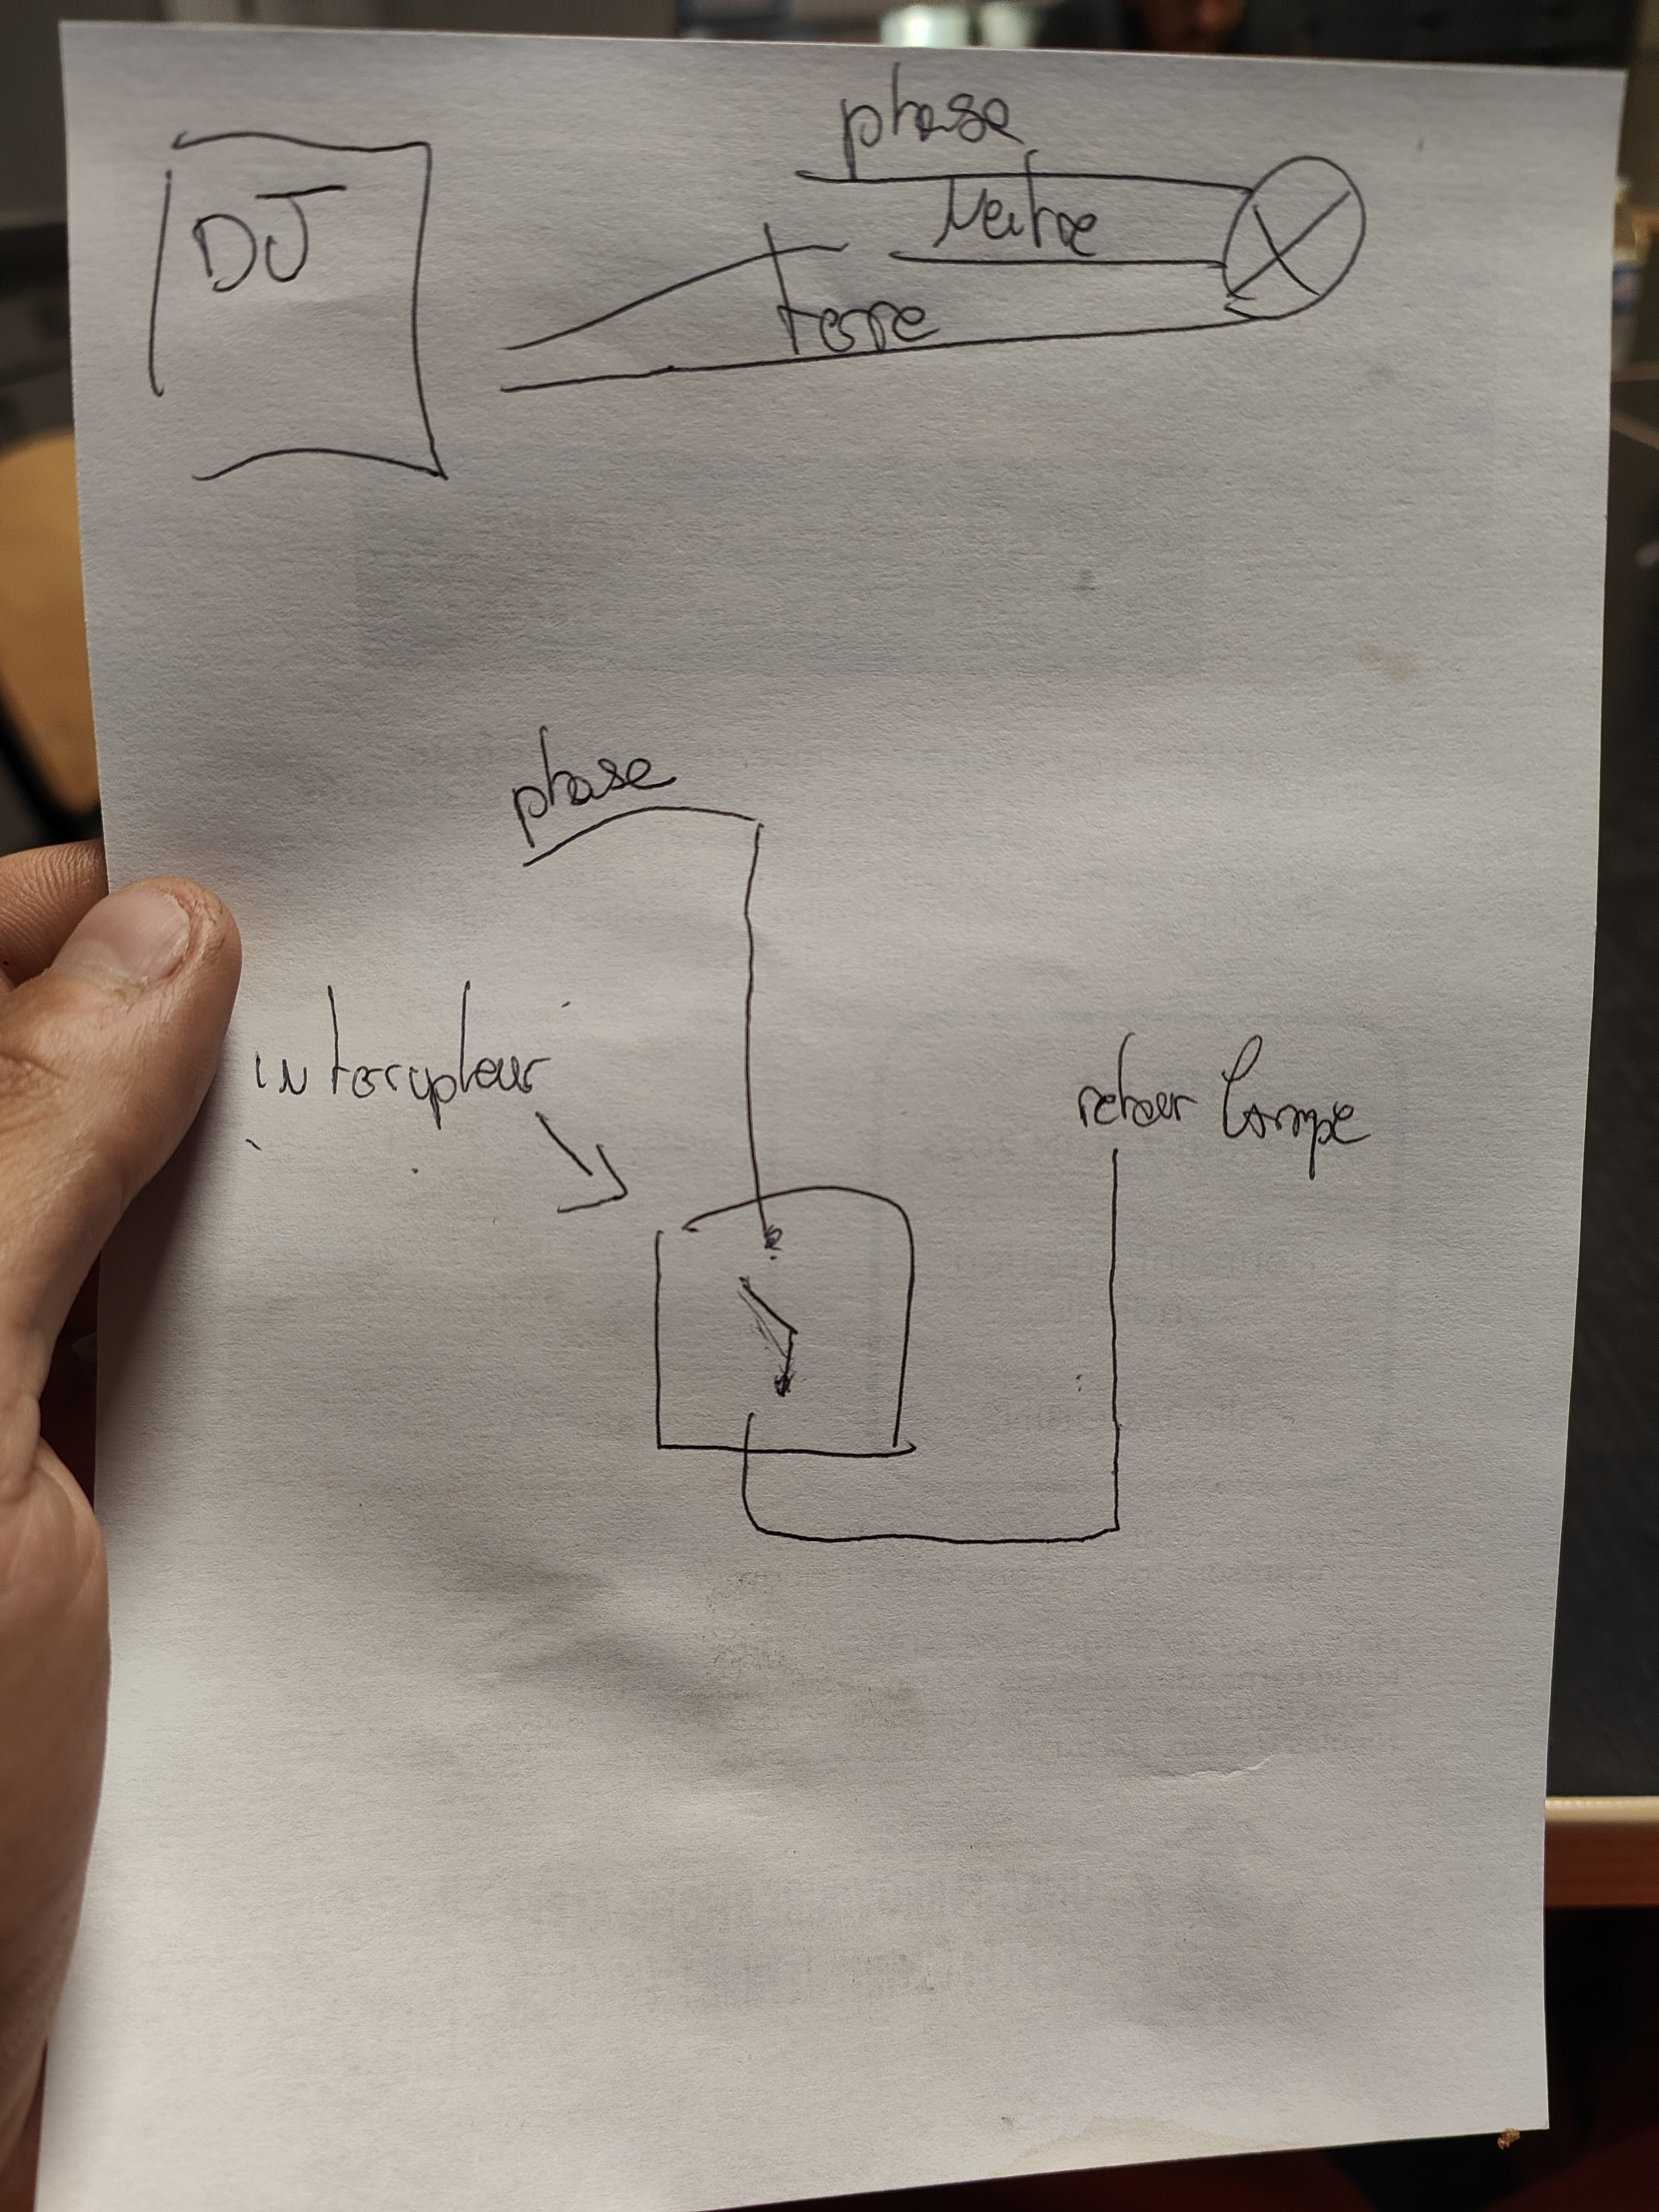 phase
DJ
Neutre
terre
phase
interupteur
retour lampe